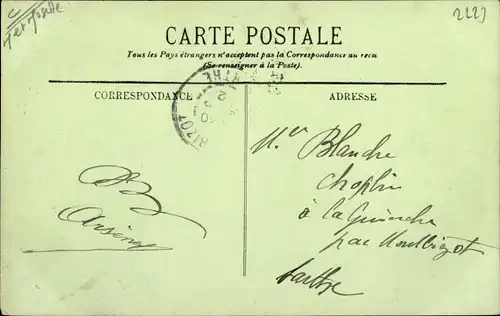 2223
CARTE POSTALE
Tous les Pays étrangers n'acceptent pas la Correspondance au recto
(Se renseigner à la Poste).
CORRESPONDANCE
ADRESSE
Blanche
Choplin
à la
par Montbizot
Sarthe
Arsène